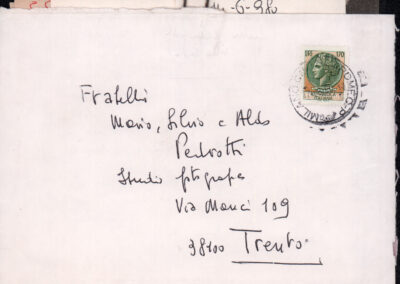 -6-980
170
Fratelli
Mario, Silvio e Aldo
Pedrotti
Studio fotografo
Via Manci 109
38100 Trento